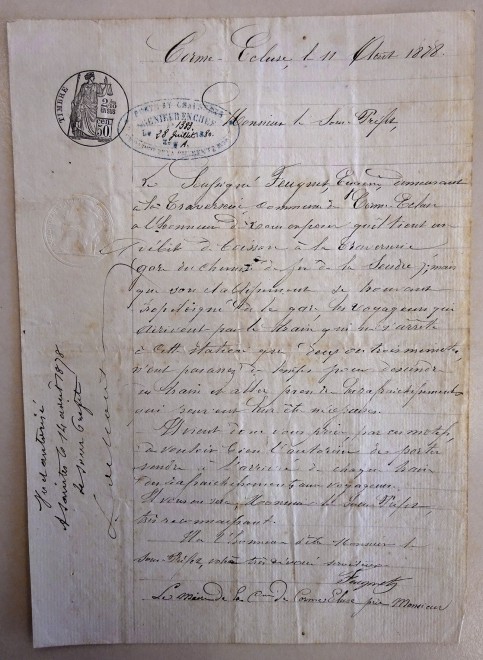 Corme-Ecluse, le 11 Août 1878.
TIMBRE
50
PONTS ET CHAUSSÉES
INGÉNIEUR EN CHEF
28 Juillet 1880
Monsieur le Sous-Préfet,
Le Soussigné demeurant
à la Traverserie commune de Corme-Ecluse
à l'honneur de vous exposer qu'il tient un
débit de boisson à la Traverserie
gare du chemin de fer de la Seudre; mais
que son établissement se trouvant
de la gare les voyageurs qui
arrivent par le train qui ne s'arrête
à cette station que deux ou trois minutes,
n'ont pas assez de temps pour descendre
du train et aller prendre les rafraîchissements
qui peuvent leur être nécessaires.
Il vient donc vous prier par ces motifs,
de vouloir bien l'autoriser de porter
vendre à l'arrivée de chaque train
des rafraîchissements aux voyageurs.
Il vous en sera, Monsieur le Sous-Préfet,
très reconnaissant.
l'honneur d'être Monsieur le
Sous-Préfet, votre très dévoué serviteur
Le maire de la Cne de Corme Ecluse prie Monsieur
Vu et autorisé
à Saintes le 14 août 1878
Le Sous Préfet